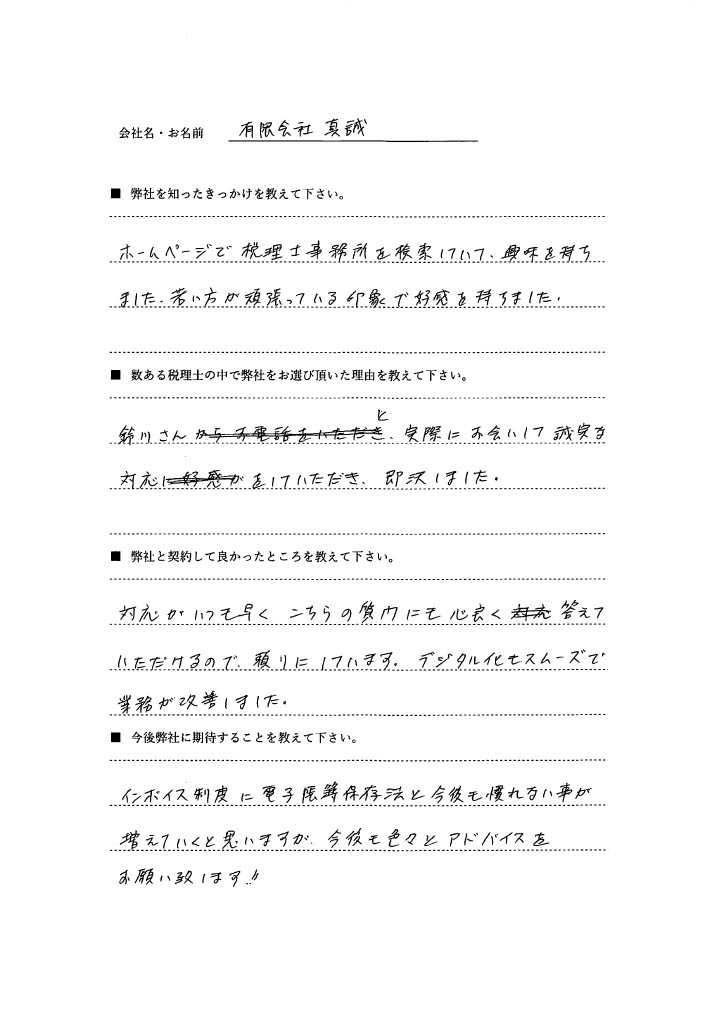 会社名・お名前 有限会社 真誠
■ 弊社を知ったきっかけを教えて下さい。
ホームページで税理士事務所を検索していて、興味を持ち
ました。若い方が頑張っている印象で好感を持ちました。
■ 数ある税理士の中で弊社をお選び頂いた理由を教えて下さい。
と
鈴川さんからお電話をいただき、実際にお会いして誠実な
対応に好感がをしていただき、即決しました。
■ 弊社と契約して良かったところを教えて下さい。
対応がいつも早く こちらの質門にも心良く対応答えて
いただけるので、頼りにしています。デジタル化もスムーズで
業務が改善しました。
■ 今後弊社に期待することを教えて下さい。
インボイス制度に電子帳簿保存法と今後も慣れない事が
増えていくと思いますが、今後も色々とアドバイスを
お願い致します!!